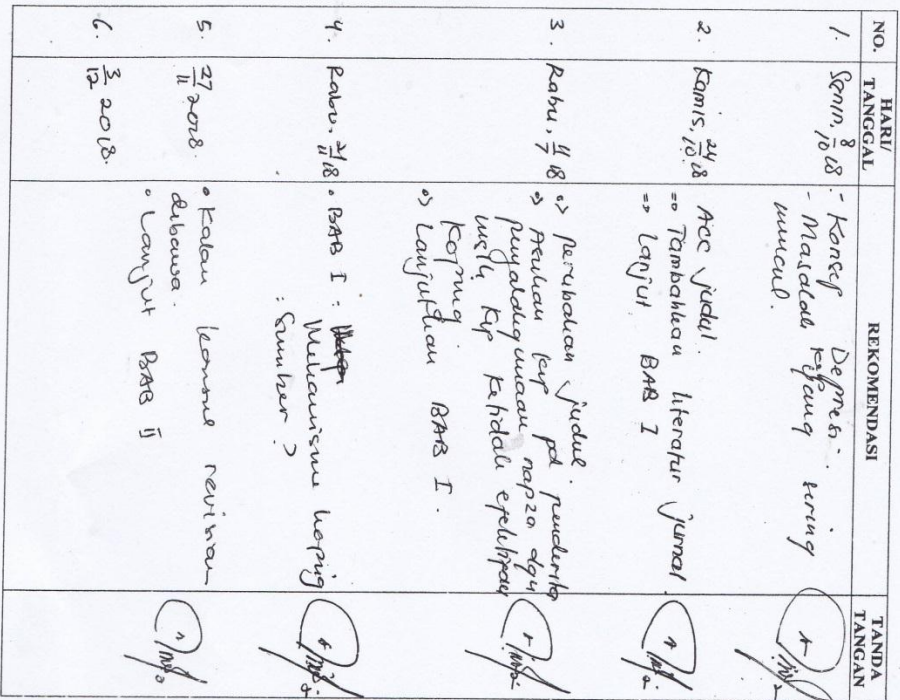 NO.
HARI/
TANGGAL
REKOMENDASI
TANDA
TANGAN
1.
Senin, 8/10 18.
- Konsep Depresi.
- Masalah yang sering
muncul.
2.
Kamis, 24/10 18
Acc judul.
=> Tambahkan literatur jurnal.
=> Lanjut BAB I
3.
Rabu, 4/7 18
=> perubahan judul.
=> Asuhan kep pd penderita
penyalahgunaan napza dgn
mslh kep ketidak efektifan
koping
=> Lanjutkan BAB I.
4.
Rabu, 21/11 18
• BAB I : Mekanisme koping
: Sumber ?
5.
27/11 2018.
• Kalau konsul revisian
dibawa.
6.
3/12 2018.
• Lanjut BAB II